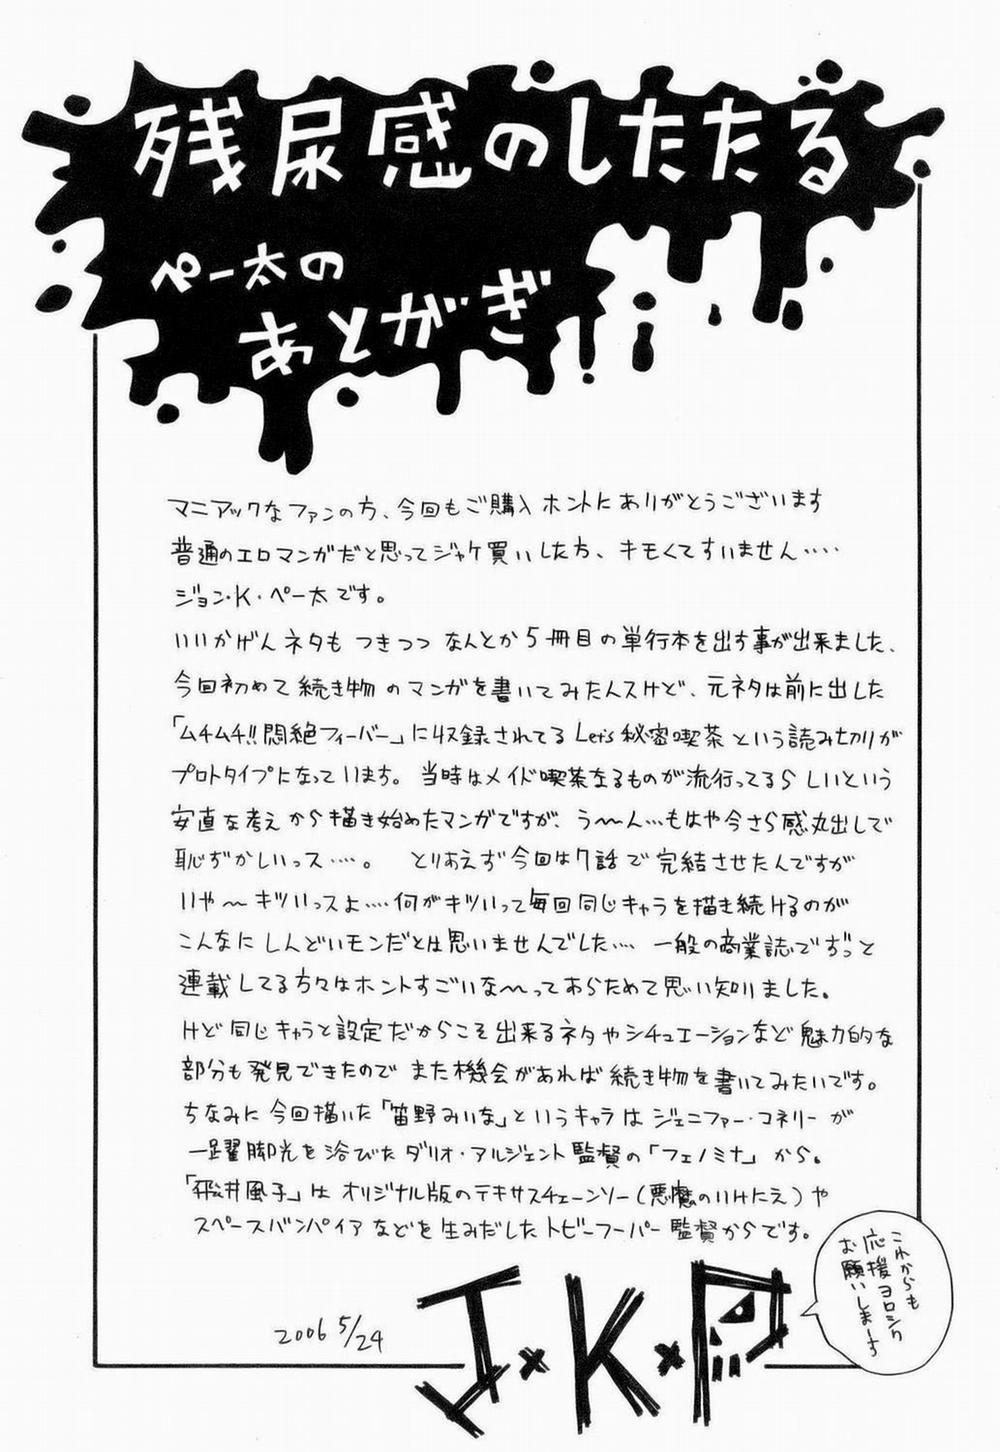 残尿感のしたたる
ペー太の
あとがき
マニアックなファンの方、今回もご購入ホントにありがとうございます
普通のエロマンガだと思ってジャケ買いした方、キモくてすいません‥‥
ジョン・K・ペー太です。
いいかげんネタもつきつつなんとか5冊目の単行本を出す事が出来ました、
今回初めて続き物のマンガを書いてみたんスけど、元ネタは前に出した
「ムチムチ!!悶絶フィーバー」に収録されてるLet's秘密喫茶という読み切りが
プロトタイプになっています。当時はメイド喫茶なるものが流行ってるらしいという
安直な考えから描き始めたマンガですが、う〜ん…もはや今さら感丸出しで
恥ずかしいっス‥‥。とりあえず今回は7話で完結させたんですが
いや〜キツいっスよ‥‥何がキツいって毎回同じキャラを描き続けるのが
こんなにしんどいモンだとは思いませんでした‥‥一般の商業誌でずっと
連載してる方々はホントすごいな〜ってあらためて思い知りました。
けど同じキャラと設定だからこそ出来るネタやシチュエーションなど魅力的な
部分も発見できたのでまた機会があれば続き物を書いてみたいです。
ちなみに今回描いた「笛野みいな」というキャラはジェニファー・コネリーが
一躍脚光を浴びたダリオ・アルジェント監督の「フェノミナ」から。
「飛井風子」はオリジナル版のテキサスチェーンソー(悪魔のいけにえ)や
スペースバンパイアなどを生みだしたトビーフーパー監督からです。
これからも
応援ヨロシク
お願いしまーす
2006 5/24
J×K×P